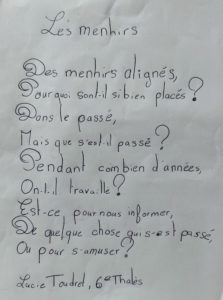 Les menhirs
Des menhirs alignés,
Pourquoi sont-il si bien placés ?
Dans le passé,
Mais que s'est-il passé ?
Pendant combien d'années,
Ont-il travaillé ?
Est-ce pour nous informer,
De quelque chose qui s'est passé,
Ou pour s'amuser ?
Lucie Toudret, 6e Thalès